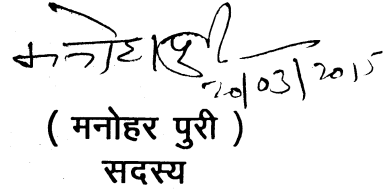 मनोहर पुरी
20/03/2015
( मनोहर पुरी )
सदस्य